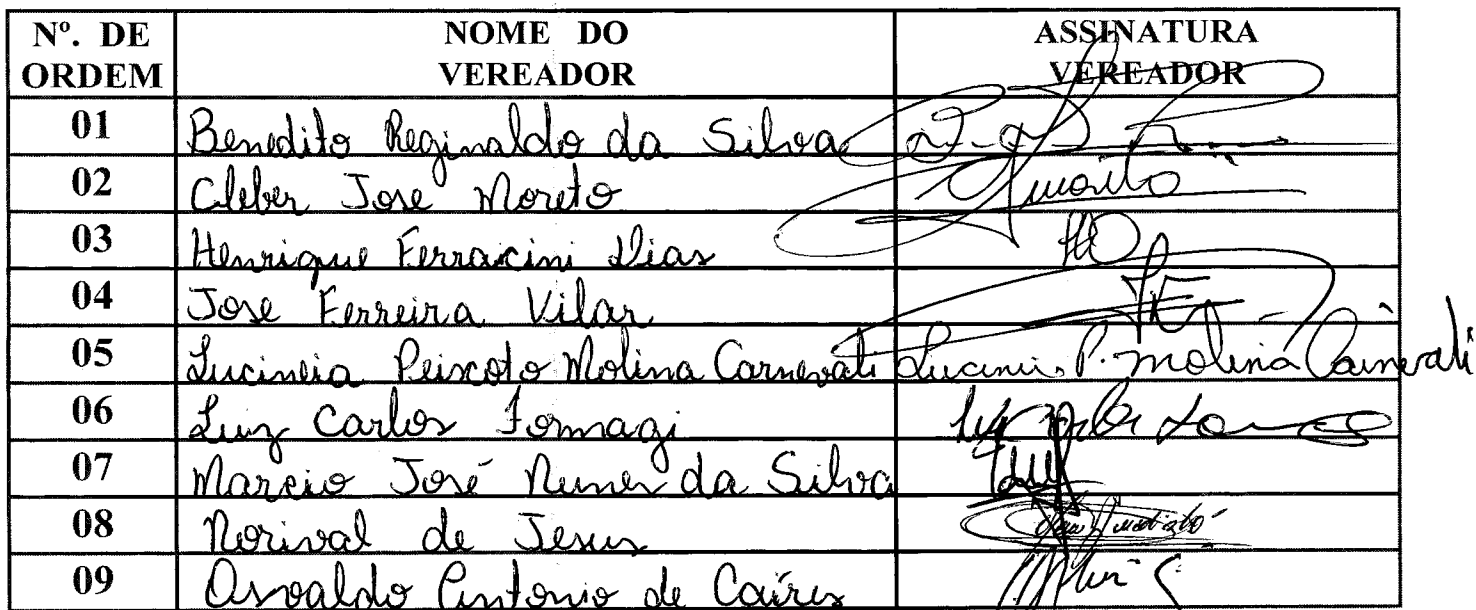 Nº. DE ORDEM NOME DO VEREADOR ASSINATURA VEREADOR
01 Benedito Reginaldo da Silva
02 Cleber Jose Moreto
03 Henrique Ferracini Dias
04 Jose Ferreira Vilar
05 Lucineia Peixoto Molina Carnevali Lucineia P. Molina Carnevali
06 Luiz Carlos Fomagi
07 Marcio José Nunes da Silva
08 Norival de Jesus
09 Osvaldo Antonio de Caires